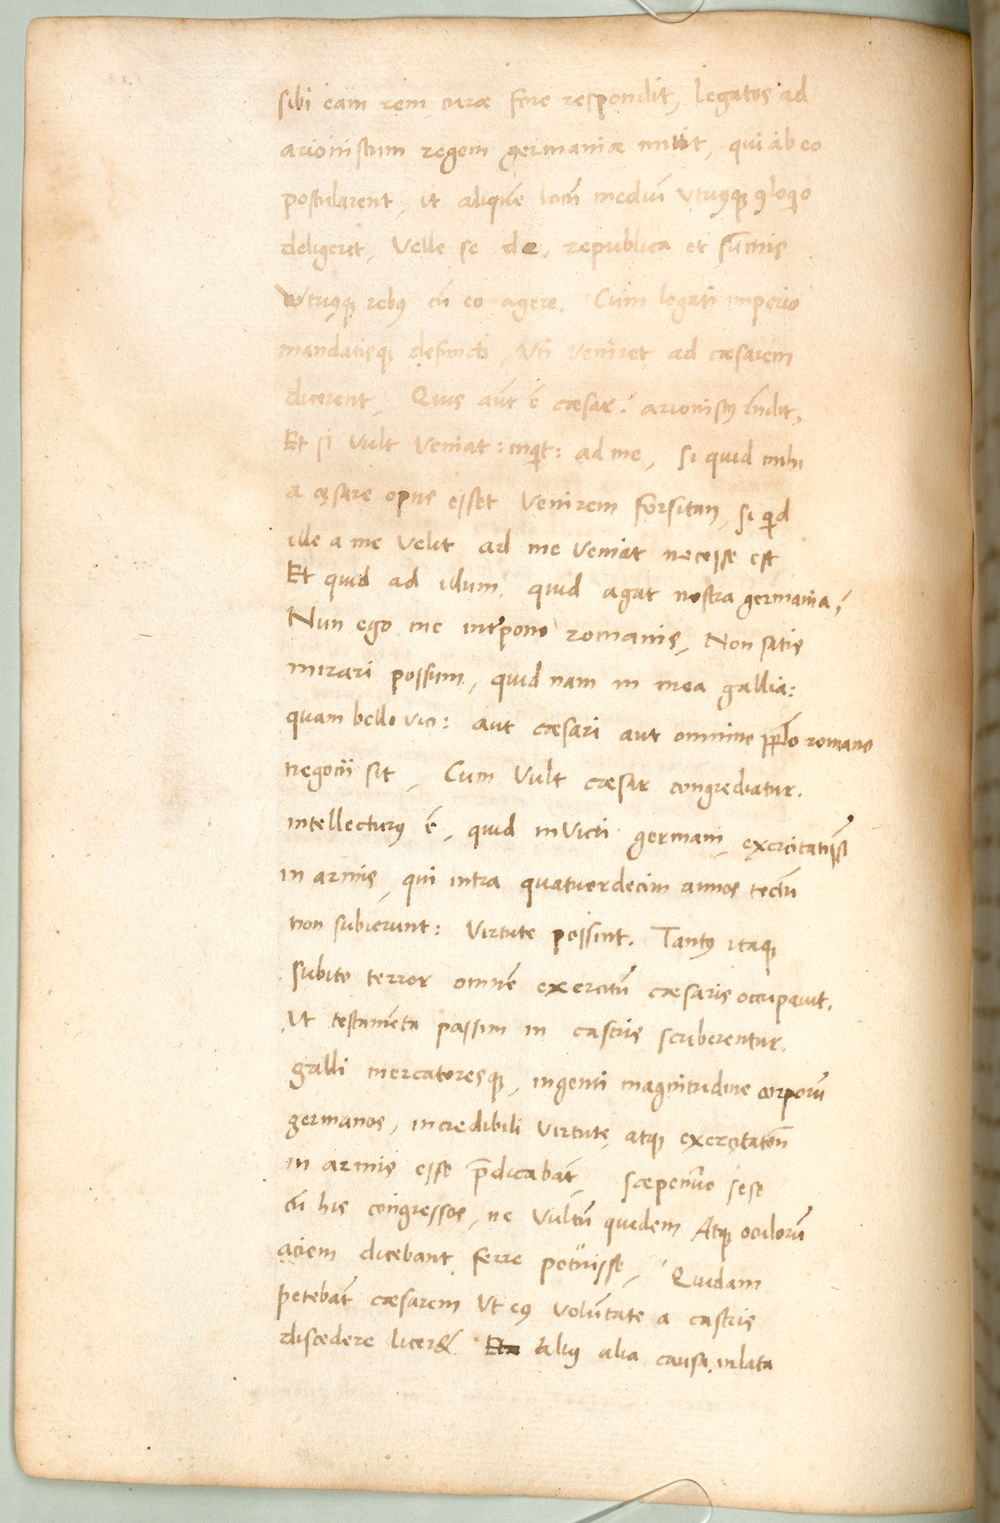 sibi eam rem curæ fore respondit, legatos ad
arionistum regem germaniæ mittit, qui ab eo
postularent, ut aliquẽ locũ mediũ Vtriusqꝫ ꝯloqio
deligeret, Velle se de, republica et sũmis
utriusqꝫ rebꝯ cũ eo agere. Cum legati imperio
mandatisqꝫ defuncti, Vti Veniret ad cæsarem
dicerent, Quis aũt ẽ cæsar? arionistꝯ
Et si Vult Veniat: inqt: ad me, si quid mihi
a cęsare opus esset Venirem forsitan, si qd
ille a me Velit ad me Veniat necesse est
Et quid ad illum, quid agat nostra germania?
Nun ego me int̃pono romanis, Non satis
mirari possum, quid nam in mea gallia:
quam bello vici: aut cæsari aut omnino pplo romano
negocii sit, Cum Vult cæsar congrediatur.
intellecturꝯ ẽ, quid inVicti germani, exercitatissi
in armis, qui intra quatuordecim annos tectũ
non subierunt: Virtute possint. Tantꝯ itaqꝫ
subito terror omnẽ exercitũ cæsaris occupauit,
Vt testamẽta passim in castris scriberentur.
galli mercatoresqꝫ, ingenti magnitudine corporũ
germanos, incredibili Virtute, atqꝫ exercitatiõe
in armis esse p̃dicabãt, sæpenũo sese
cũ his congressos, ne Vultũ quidem Atqꝫ oculorũ
aciem dicebant ferre potuisse, Quidam
petebãt cæsarem Vt eiꝯ Volũtate a castris
discedere licer& aliꝯ alia causa inlata